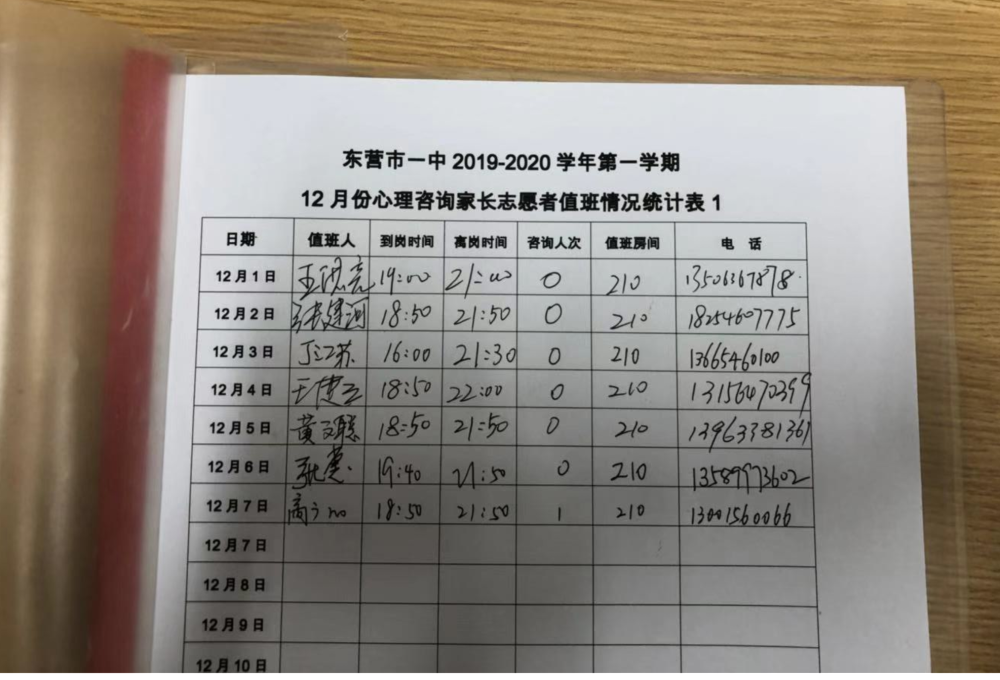 东营市一中 2019-2020 学年第一学期
12 月份心理咨询家长志愿者值班情况统计表 1
日期 值班人 到岗时间 离岗时间 咨询人次 值班房间 电 话
12月1日 19:00 21:00 0 210 13506367878
12月2日 张建河 18:50 21:50 0 210 18254607775
12月3日 丁江苏 16:00 21:30 0 210 13665460100
12月4日 18:50 22:00 0 210 13156470399
12月5日 黄文聪 18:50 21:50 0 210 13963381361
12月6日 19:40 21:50 0 210 13589973602
12月7日 18:50 21:50 1 210 13001560066
12月7日
12月8日
12月9日
12月10日